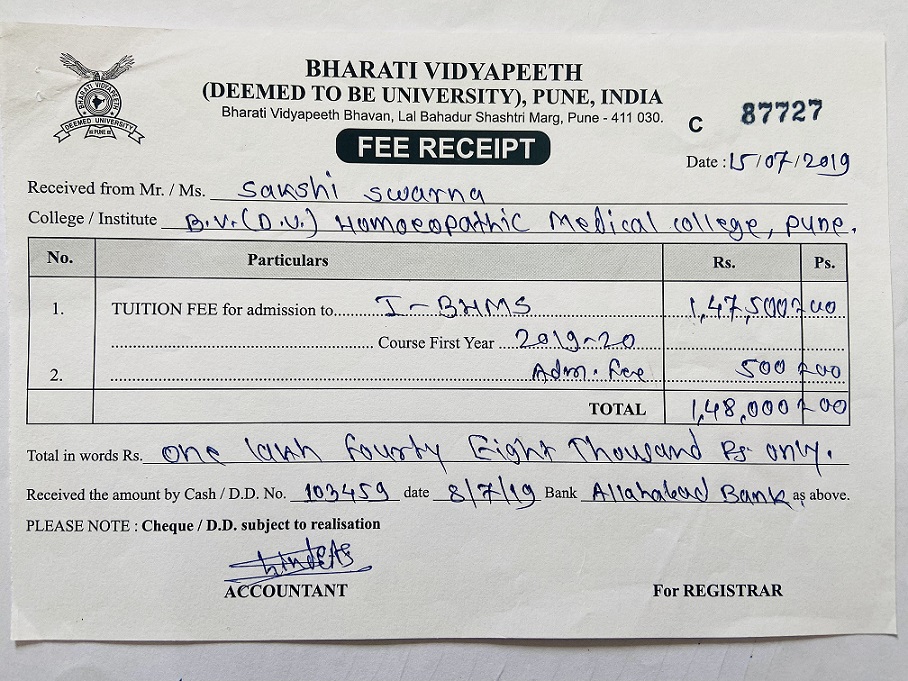 BHARATI VIDYAPEETH
DEEMED UNIVERSITY
PUNE
BHARATI VIDYAPEETH
(DEEMED TO BE UNIVERSITY), PUNE, INDIA
Bharati Vidyapeeth Bhavan, Lal Bahadur Shashtri Marg, Pune - 411 030.
C 87727
FEE RECEIPT
Date : 15/07/2019
Received from Mr. / Ms. Sakshi Swarna
College / Institute B.V.(D.U.) Homoeopathic Medical college, pune.
No. Particulars Rs. Ps.
1. TUITION FEE for admission to I-BHMS 1,47,500=00
Course First Year 2019-20
2. Adm. Fee 500=00
TOTAL 1,48,000=00
Total in words Rs. One lakh fourty Eight Thousand Rs only.
Received the amount by Cash / D.D. No. 103459 date 8/7/19 Bank Allahabad Bank as above.
PLEASE NOTE : Cheque / D.D. subject to realisation
ACCOUNTANT For REGISTRAR